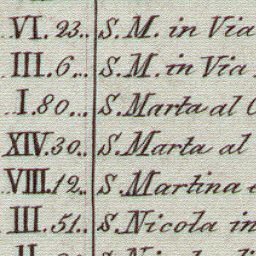 VI.23.. S.M. in Via
III.6... S.M. in Via
I.80... S.Marta al
XIV.30.. S.Marta al
VIII.12.. S.Martina e
III.51.. S.Nicola in